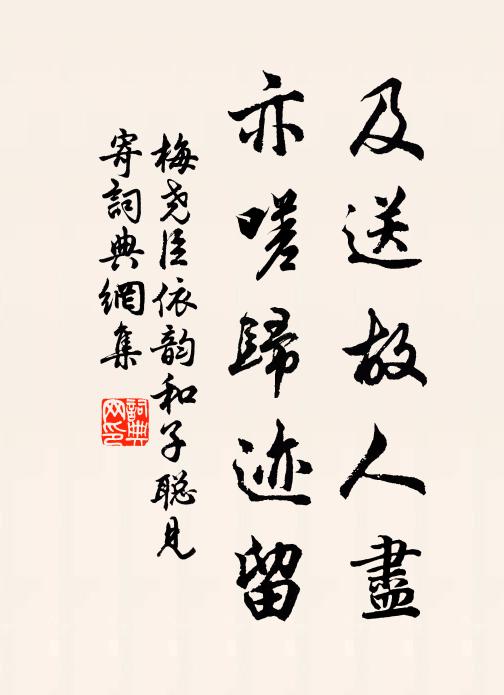 及送故人盡
亦嗟歸迹留
梅尧臣依韵和子聪見
寄詞典網集
詞典
网印